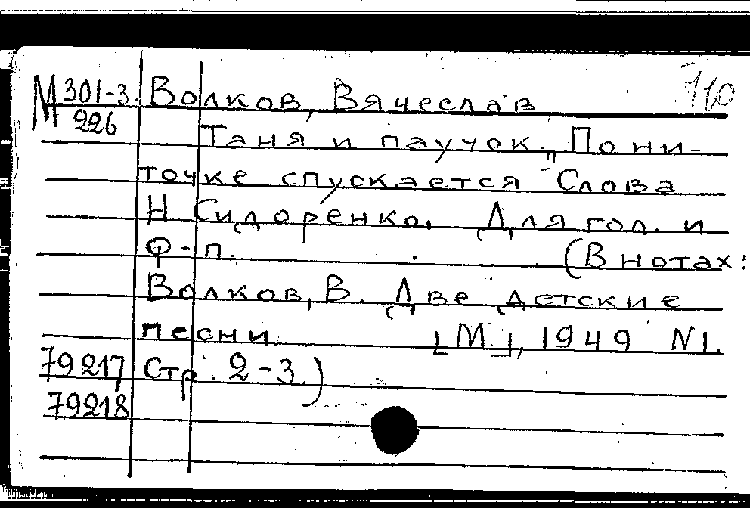 М 301-3 Волков, Вячеслав 110
226 Таня и паучок. „По ни-
точке спускается" Слова
Н. Сидоренко. Для гол. и
ф-п. (В нотах:
Волков, В. Две детские
песни. [М.], 1949 №1.
79217 Стр. 2-3.)
79218